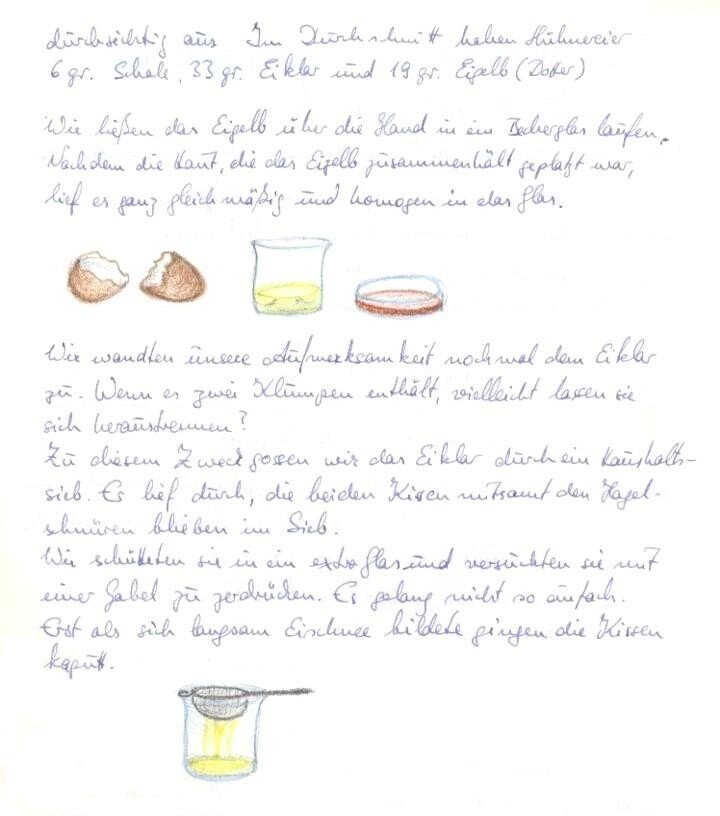 durchsichtig aus Im Durchschnitt haben Hühnereier
6 gr. Schale, 33 gr. Eiklar und 19 gr. Eigelb (Dotter)
Wir ließen das Eigelb über die Hand in ein Becherglas laufen.
Nachdem die Haut, die das Eigelb zusammenhält geplatzt war,
lief es ganz gleichmäßig und homogen in das Glas.
Wir wandten unsere Aufmerksamkeit noch mal dem Eiklar
zu. Wenn es zwei Klumpen enthält, vielleicht lassen sie
sich heraustrennen?
Zu diesem Zweck gossen wir das Eiklar durch ein Haushalts-
sieb. Es lief durch, die beiden Kissen mitsamt den Hagel-
schnüren blieben im Sieb.
Wir schütteten sie in ein extra Glas und versuchten sie mit
einer Gabel zu zerdrücken. Es gelang nicht so einfach.
Erst als sich langsam Eischnee bildete gingen die Kissen
kaputt.